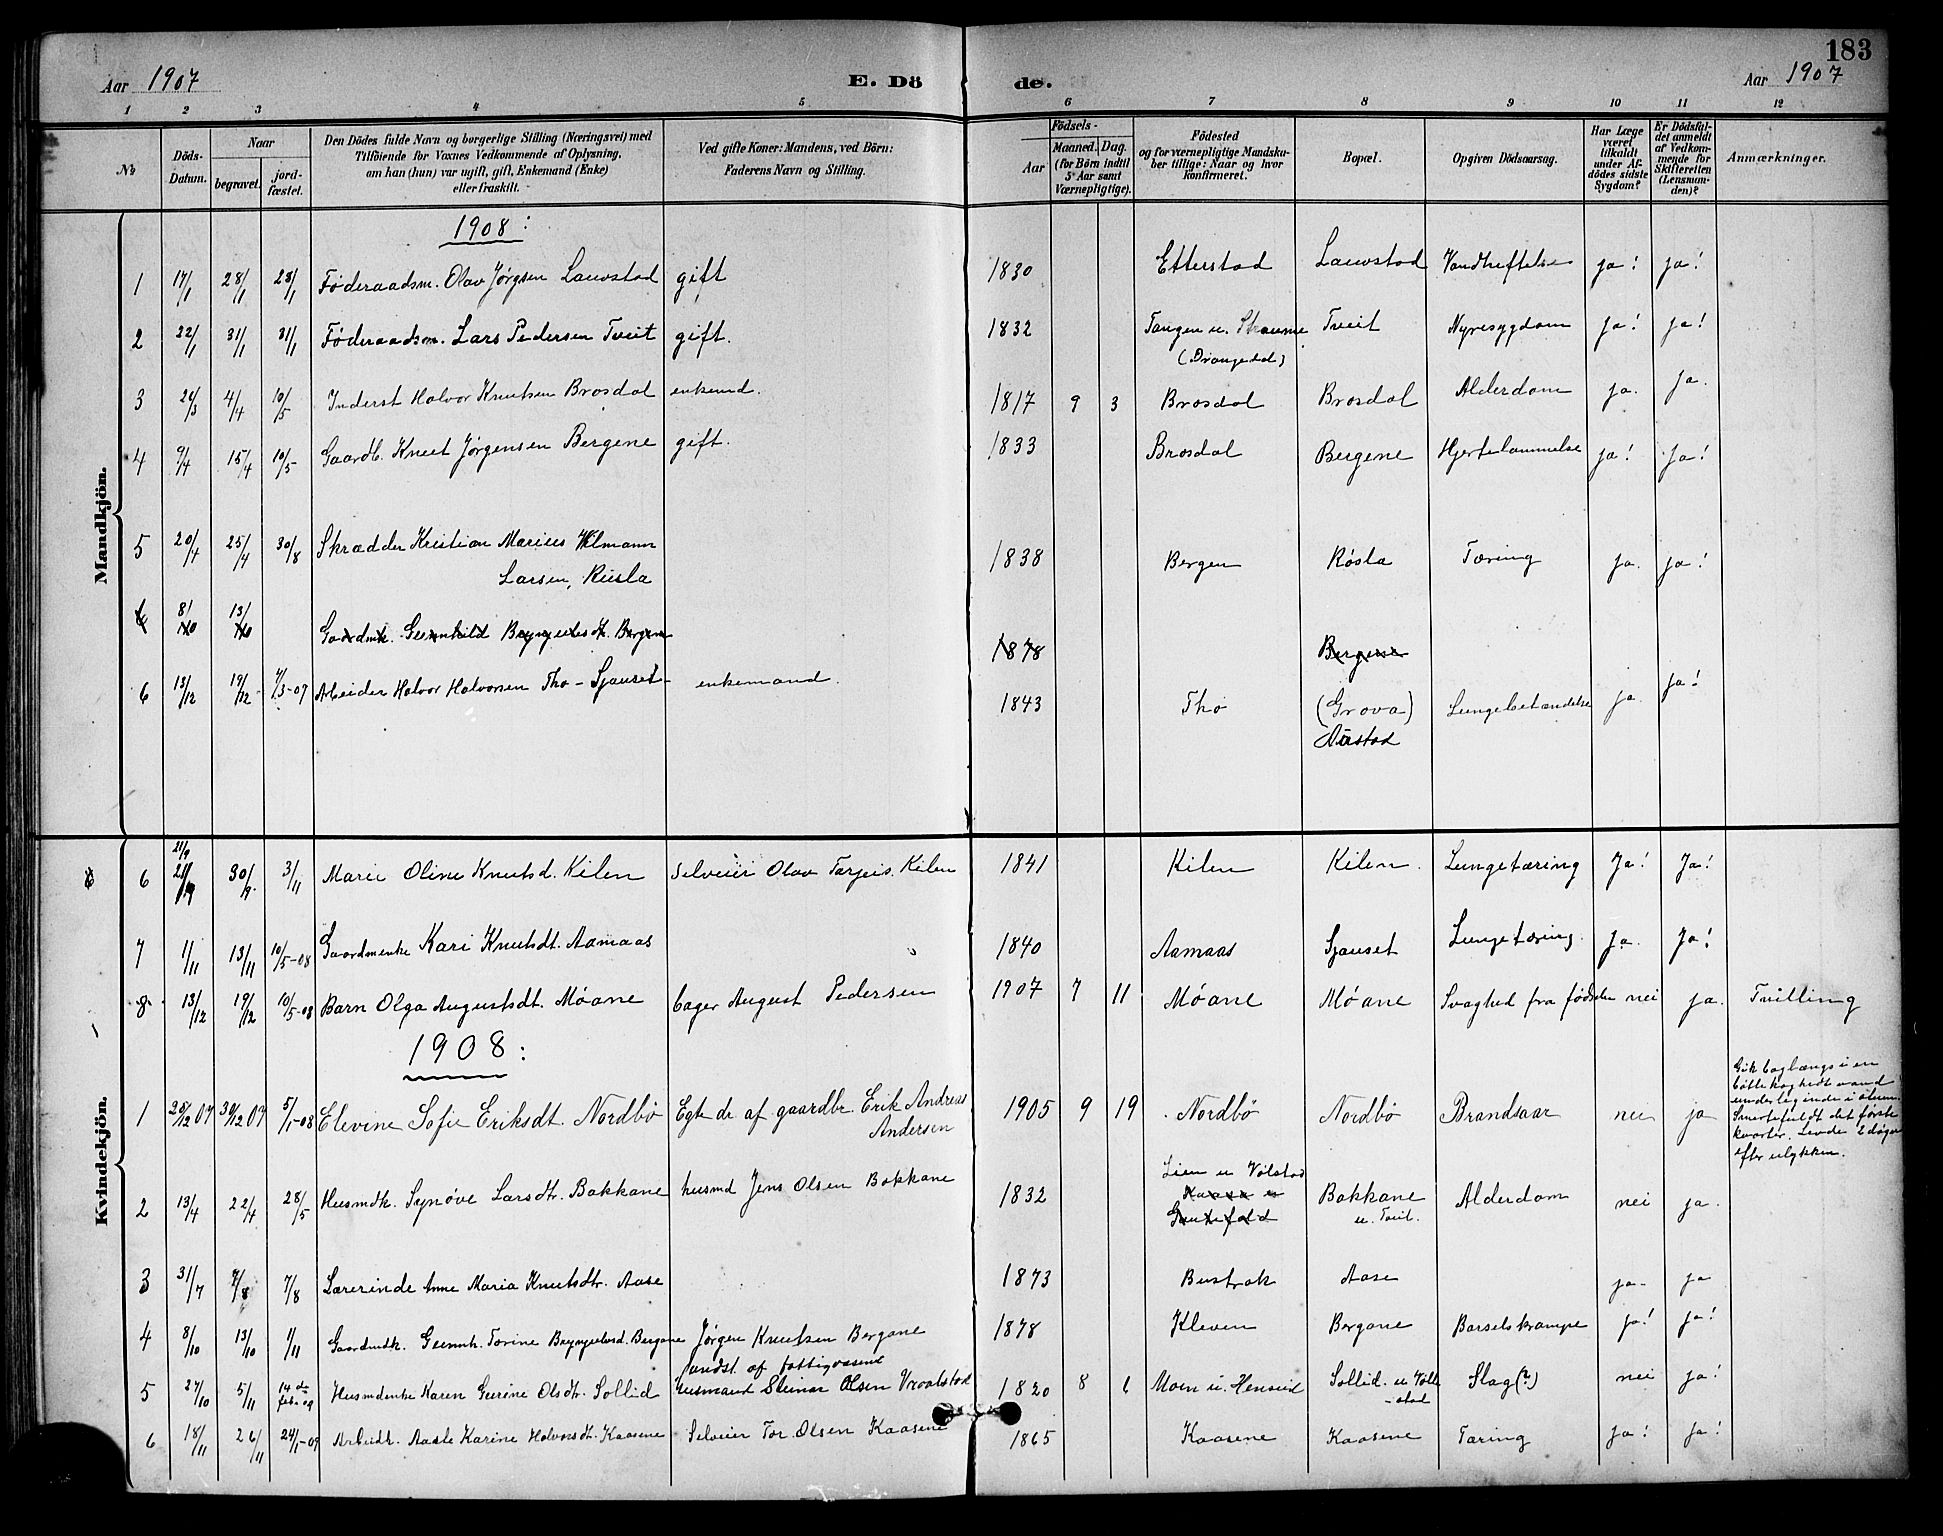 183
Aar 1907 E. Dö de. Aar 1907
1 2 3 4 5 6 7 8 9 10 11 12
No
Döds-Datum.
Naar
begravet.
jord-fæstet.
Den Dödes fulde Navn og borgerlige Stilling (Næringsvei) med
Tilföiende for Voxnes Vedkommende af Oplysning,
om han (hun) var ugift, gift, Enkemand (Enke)
eller fraskilt.
Ved gifte Koner: Mandens, ved Börn:
Faderens Navn og Stilling.
Födsels-
Aar
Maaned. Dag.
(for Börn indtil
5 Aar samt
Værnepligtige).
Födested
og for værnepligtige Mandska-
ber tillige: Naar og hvor
konfirmeret.
Bopæl.
Opgiven Dödsaarsag.
Har Læge
været
tilkaldt
under Af-
dödes sidste
Sygdom?
Er Dödsfal-
det anmeldt
af Vedkom-
mende for
Skifteretten
(Lensman-
den)?
Anmærkninger.
Mandkjön.
1908:
1 17/1 28/1 28/1 Føderaadsm. Olav Jørgsen Lauvstad gift 1830 Etterstad Lauvstad Vandheftelse ja! ja!
2 22/1 31/1 31/1 Føderaadsm. Lars Pedersen Tveit gift. 1832 Tangen u. Straume Tveit Nyresygdom ja! ja!
(Drangedal)
3 26/3 4/4 10/5 Inderst Halvor Knutsen Brosdal enkemd. 1817 9 3 Brosdal Brosdal Alderdom ja. ja.
4 9/4 15/4 10/5 Gaardb. Knut Jørgensen Bergene gift. 1833 Brosdal Bergene Hjertelammelse ja! ja!
5 20/4 25/4 30/8 Skrædder Kristian Marius Wilmann
Larsen, Rusla 1838 Bergen Røsla Tæring ja. ja!
6 8/10 13/10 Gaardmk. Gunnhild Bryngelsdt. Bergene 1878 Bergene
6 13/12 19/12 7/3-09 Arbeider Halvor Halvorsen Tho - Sjauset- enkemand. 1843 Tho (Grova) Lungebetændelse ja ja!
Aastad
Kvindekjön.
6 21/9 30/9 3/11 Marie Oline Knutsd. Kilen Selveier Olav Tarjeis. Kilen 1841 Kilen Kilen. Lungetæring Ja! Ja!
7 1/11 13/11 10/5-08 Gaardmenke Kari Knutsdt. Aamaas 1840 Aamaas Sjauset Lungetæring. Ja. Ja!
8 13/12 19/12 10/5-08 Barn Olga Augustsdt. Móane Cager August Pedersen 1907 7 11 Móane Móane Svaghed fra fødselen nei ja. Tvilling
1908:
1 28/12 07 30/12 07 5/1-08 Elevine Sofie Eriksdt. Nordbø Egte dr. af gaardbr. Erik Andreas
Andersen 1905 9 19 Nordbø Nordbø Brandsaar nei ja
Gik baglængs i en
bøtte koghedt vand
underleg inde i stuen.
Smertefuldt det første
kvarter. Levde 2 døgn
efter ulykken.
2 13/4 22/4 28/5 Husmdk. Synøve Larsdtr. Bakkane husmd Jens Olsen Bakkane 1832 Lien u Vølstad
Gautefald Bakkane
u. Tveit. Alderdom nei ja.
3 31/7 7/8 7/8 Lærerinde Anne Maria Knutsdtr. Aase 1873 Bustrak Aase ja- ja
4 8/10 13/10 1/11 Gaardmdk. Gunnh. Torine Bryngelsd. Bergane Jørgen Knutsen Bergane 1878 Kleven Bergane Barselskrampe ja! ja!
5 27/10 5/11 14de feb-09 Husmdenke Karen Gurine Olsdtr. Sollid undst. af fattigvæsenet
husmand Steinar Olsen Vraalstad 1820 8 6 Moen u. Henseid Sollid. u Vølle
-stad Slag(?) nei ja!
6 18/11 26/11 24/1-09 Arbeidk. Aasle Karine Halvorsdt. Kaasene Selveier Tor Olsen Kaasene 1865 Kaasene Kaasene Tæring ja! ja!